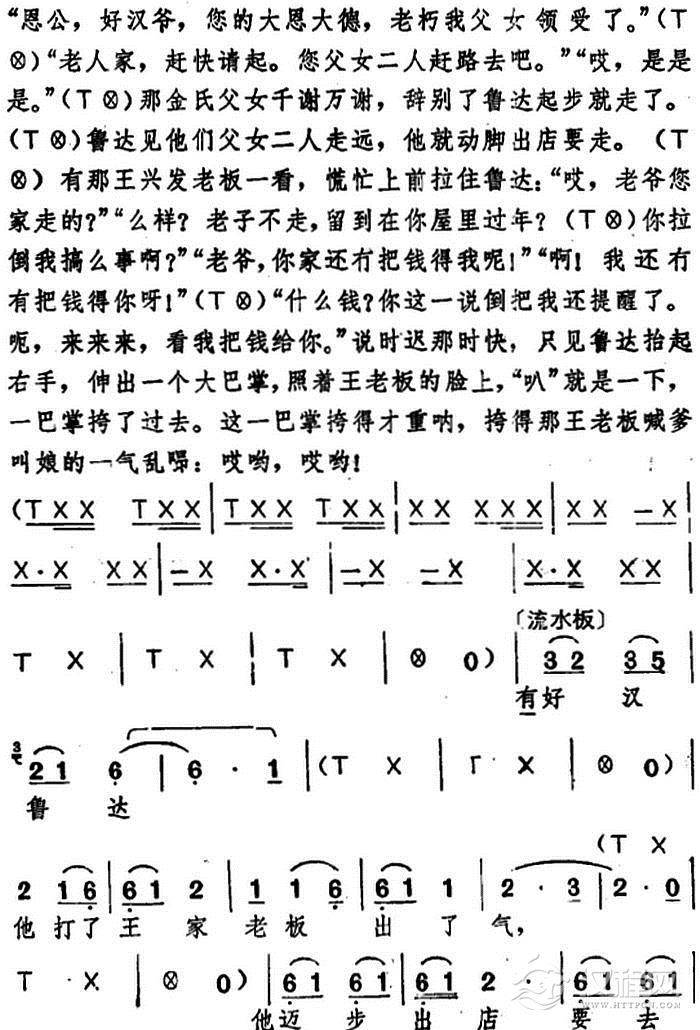 “恩公，好汉爷，您的大恩大德，老朽我父女领受了。”(T
⊗)“老人家，赶快请起。您父女二人赶路去吧。”“哎，是是
是。”(T ⊗)那金氏父女千谢万谢，辞别了鲁达起步就走了。
(T ⊗)鲁达见他们父女二人走远，他就动脚出店要走。(T
⊗)有那王兴发老板一看，慌忙上前拉住鲁达：“哎，老爷您
家走的？”“么样？老子不走，留到在你屋里过年？(T ⊗)你拉
倒我搞么事啊？”“老爷，你家还冇把钱得我呢！”“啊！我还冇
有把钱得你呀！”(T ⊗)“什么钱？你这一说倒把我还提醒了。
呃，来来来，看我把钱给你。”说时迟那时快，只见鲁达抬起
右手，伸出一个大巴掌，照着王老板的脸上，“叭”就是一下，
一巴掌挎了过去。这一巴掌挎得才重呐，挎得那王老板喊爹
叫娘的一气乱嗥：哎哟，哎哟！
(T X X T X X | T X X T X X | X X X X X | X X － X |
X · X X X | － X X · X | X X － X | X · X X X |
〔流水板〕
T X | T X | T X | ⊗ 0) | 3 2 3 5 |
有好 汉
3 2 1 6 | 6 · 1 | (T X | T X | ⊗ 0) |
鲁 达
(T X
2 1 6 | 6 1 2 | 1 1 6 | 6 1 1 | 2 · 3 | 2 · 0 |
他 打了 王 家 老 板 出 了 气，
T X | ⊗ 0) | 6 1 6 1 | 6 1 2 · | 6 1 6 1 |
他迈 步 出 店 要 去
汉程网
HTTPCN.COM